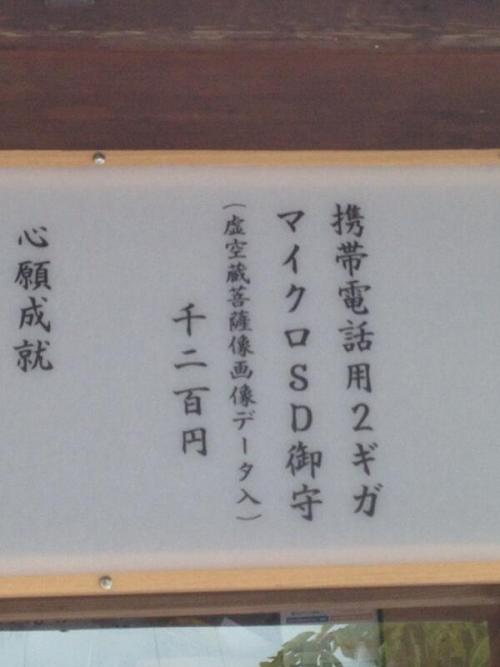 携帯電話用2ギガ
マイクロSD御守
(虚空蔵菩薩像画像データ入)
千二百円
心願成就